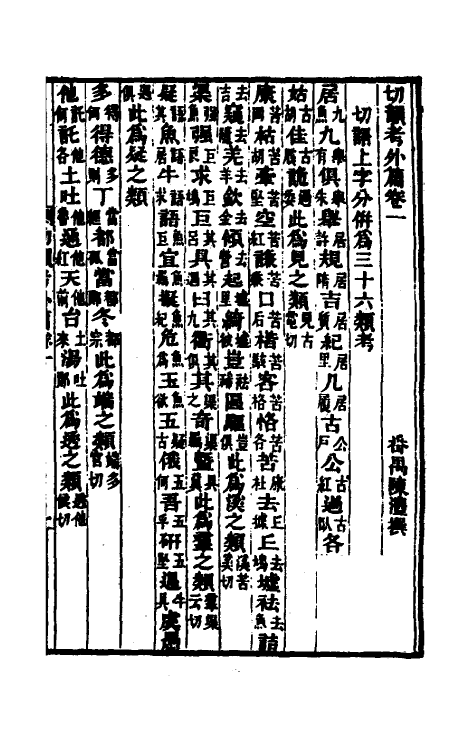 切韻考外篇卷一
番禺陳澧撰
切語上字分倂爲三十六類考
居九魚九舉有俱舉朱舉居許規居隋吉居質紀居里几居履古公戶公古紅過古臥各
姑古胡佳古膎詭過委此爲見之類見古電切
康苦岡枯苦胡牽苦堅空苦紅謙苦兼口苦后楷苦駭客苦格恪苦各苦康杜去丘據丘去鳩墟袪去魚詰
去吉窺去隨羌去羊欽去金傾去營起墟里綺墟彼豈袪豨區驅豈俱此爲溪之類溪苦奚切
渠強魚強巨良求巨鳩巨其呂具其遇臼其九衢其俱其渠之奇渠羈曁具冀此爲羣之類羣渠云切
疑語其魚語居牛語求語魚巨宜魚羈擬魚紀危魚爲玉魚欲五疑古俄五何吾五乎研五堅遇牛具虞愚
遇俱此爲疑之類
多得何得德多則丁當經都當孤當都郎冬都宗此爲端之類端多官切
他託何託他各土吐他魯通他紅天他前台土來湯吐郎此爲透之類透他候切